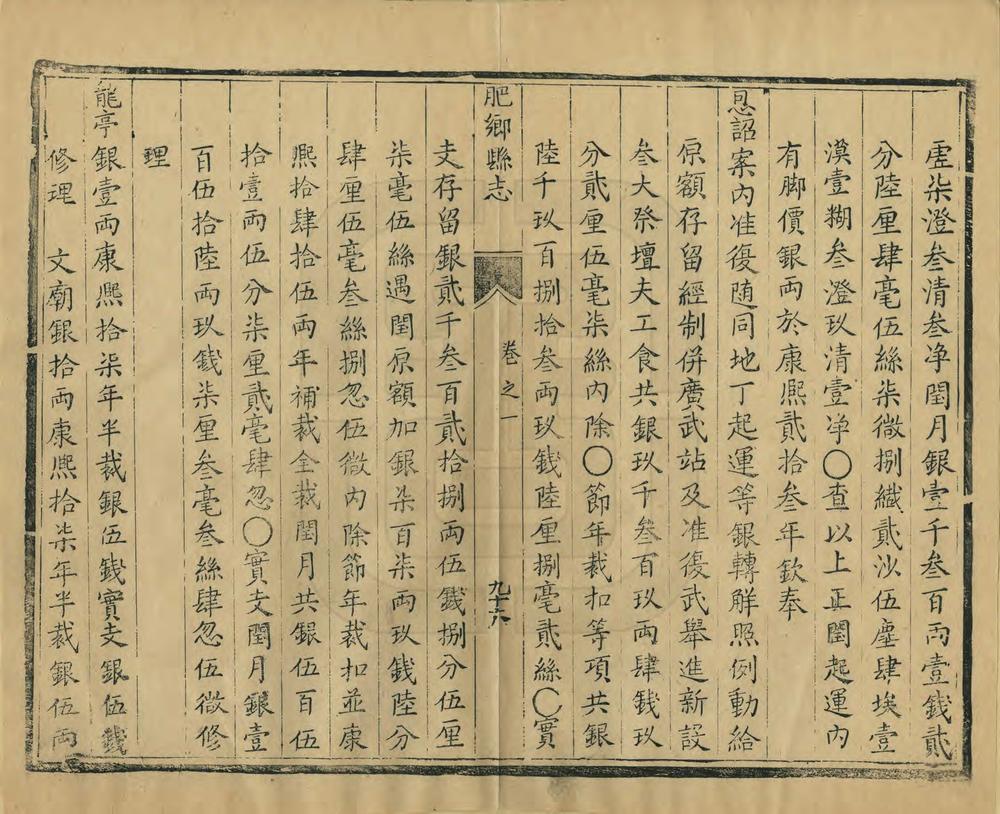 虗柒澄叁清叁净閏月銀壹千叁百両壹錢貳
分陸厘肆毫伍絲柒微捌纎貳沙伍塵肆埃壹
漠壹糊叁澄玖清壹净〇查以上正閏起運内
有脚價銀両於康熙貳拾叁年欽奉
恩詔案内准復随同地丁起運等銀轉解照例動給
原額存留經制併廣武站及准復武舉進新設
叁大祭壇夫工食共銀玖千叁百玖両肆錢玖
分貳厘伍毫柒絲内除〇節年裁扣等項共銀
陸千玖百捌拾叁両玖錢陸厘捌毫貳絲〇實
肥鄉縣志
卷之一
九十六
支存留銀貳千叁百貳拾捌両伍錢捌分伍厘
柒毫伍絲遇閏原額加銀柒百柒両玖錢陸分
肆厘伍毫叁絲捌忽伍微内除節年裁扣並康
熙拾肆拾伍両年補裁全裁閏月共銀伍百伍
拾壹両伍分柒厘貳毫肆忽〇實支閏月銀壹
百伍拾陸両玖錢柒厘叁毫叁絲肆忽伍微修
理
龍亭銀壹両康熙拾柒年半裁銀伍錢實支銀伍錢
修理 文廟銀拾両康熙拾柒年半裁銀伍両